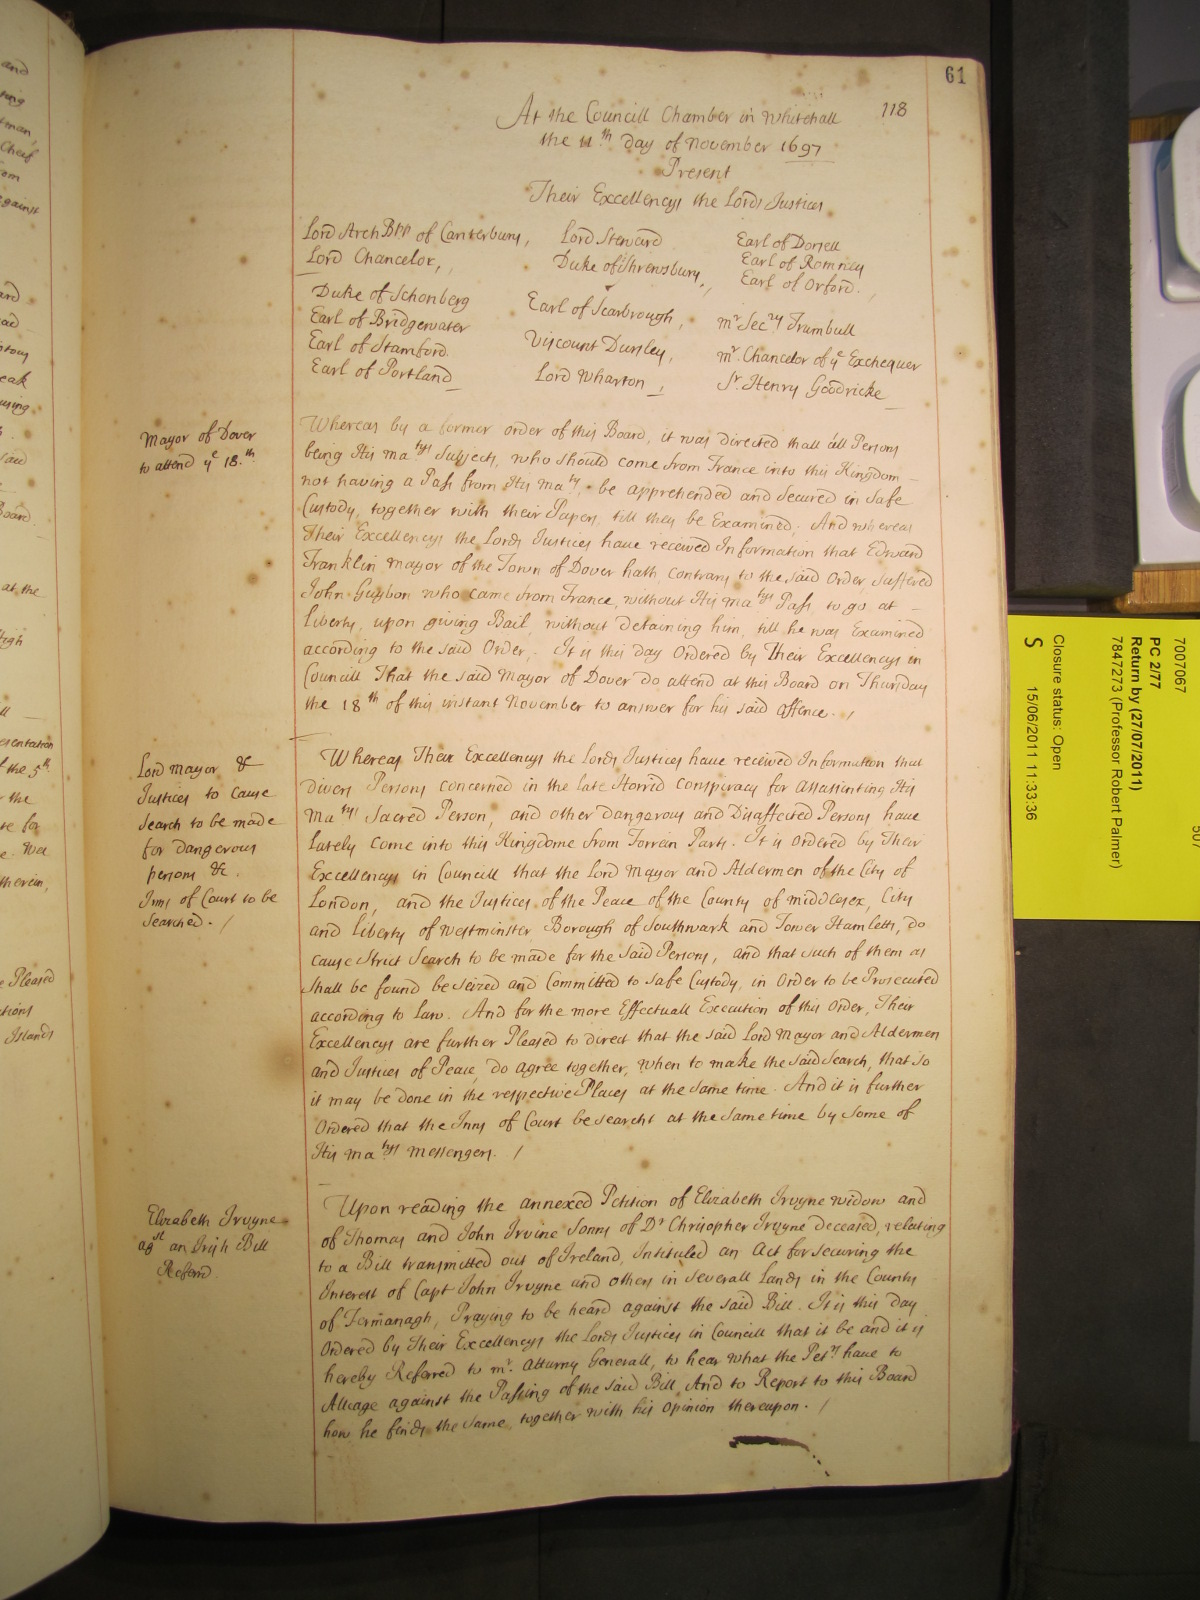 61
118
At the Councill Chamber in Whitehall
the 11th day of November 1697
Present
Their Excellencys the Lords Justices
Lord ArchBpp of Canterbury, Lord Steward Earl of Dorsett
Lord Chancelor, Duke of Shrewsbury, Earl of Romney
Earl of Orford.
Duke of Schonberg Earl of Scarbrough, Mr Secry Trumbull
Earl of Bridgewater
Earl of Stamford. Viscount Dursley, Mr. Chancelor of ye Exchequer
Earl of Portland Lord Wharton, Sr. Henry Goodricke
Mayor of Dover
to attend ye 18.th
Whereas by a former order of this Board, it was directed thatt all Persons
being His Matys Subjects, who should come from France into this Kingdom
not having a Pass from His Maty, be apprehended and Secured in Safe
Custody, together with their Papers, till they be Examined; And whereas
Their Excellencys the Lords Justices have received Information that Edward
Franklin Mayor of the Town of Dover hath, contrary to the said Order, suffered
John Guybon who came from France, without His Matys Pass, to go at
liberty, upon giving Bail, without detaining him, till he was Examined
according to the said Order, It is this day Ordered by Their Excellencys in
Councill That the said Mayor of Dover do attend at this Board on Thursday
the 18th of this instant November to answer for his said offence. /
Lord Mayor &
Justices to Cause
Search to be made
for dangerous
persons &c.
Inns of Court to be
Searched. /
Whereas Their Excellencys the Lords Justices have received Information that
divers Persons concerned in the late Horrid conspiracy for assassinting His
Matys Sacred Person, and other dangerous and Disaffected Persons have
lately come into this Kingdome from Forrein Parts. It is ordered by Their
Excellencys in Councill that the Lord Mayor and Aldermen of the City of
London, and the Justices of the Peace of the County of Middlesex, City
and liberty of Westminster, Borough of Southwark and Tower Hamletts, do
cause Strict Search to be made for the said Persons, and that such of them as
shall be found be seized and Committed to safe Custody, in Order to be Prosecuted
according to Law. And for the more Effectuall Execution of this Order, Their
Excellencys are further Pleased to direct that the said Lord Mayor and Aldermen
and Justices of Peace, do agree together, when to make the said search, that so
it may be done in the respective Places at the same time. And it is further
Ordered that the Inns of Court be searcht at the same time by some of
His Matys Messengers. /
Elizabeth Irvyne
agst an Irish Bill
Referrd.
Upon reading the annexed Petition of Elizabeth Irvyne widow and
of Thomas and John Irvine Sonns of Dr Chrisopher Irvyne deceased, relating
to a Bill transmitted out of Ireland, Intituled an Act for securing the
Interest of Capt John Irvyne and others in severall Lands in the County
of Fermanagh, Praying to be heard against the said Bill. It is this day
Ordered by Their Excellencys the Lords Justices in Councill that it be and it is
hereby Referred to Mr. Atturny Generall, to hear what the Petrs have to
Alleage against the Passing of the said Bill, And to Report to this Board
how he finds the same, together with his opinion thereupon. /
7007067
PC 2/77
Return by (27/07/2011)
7847273 (Professor Robert Palmer)
Closure status: Open
S 15/06/2011 11:33:36